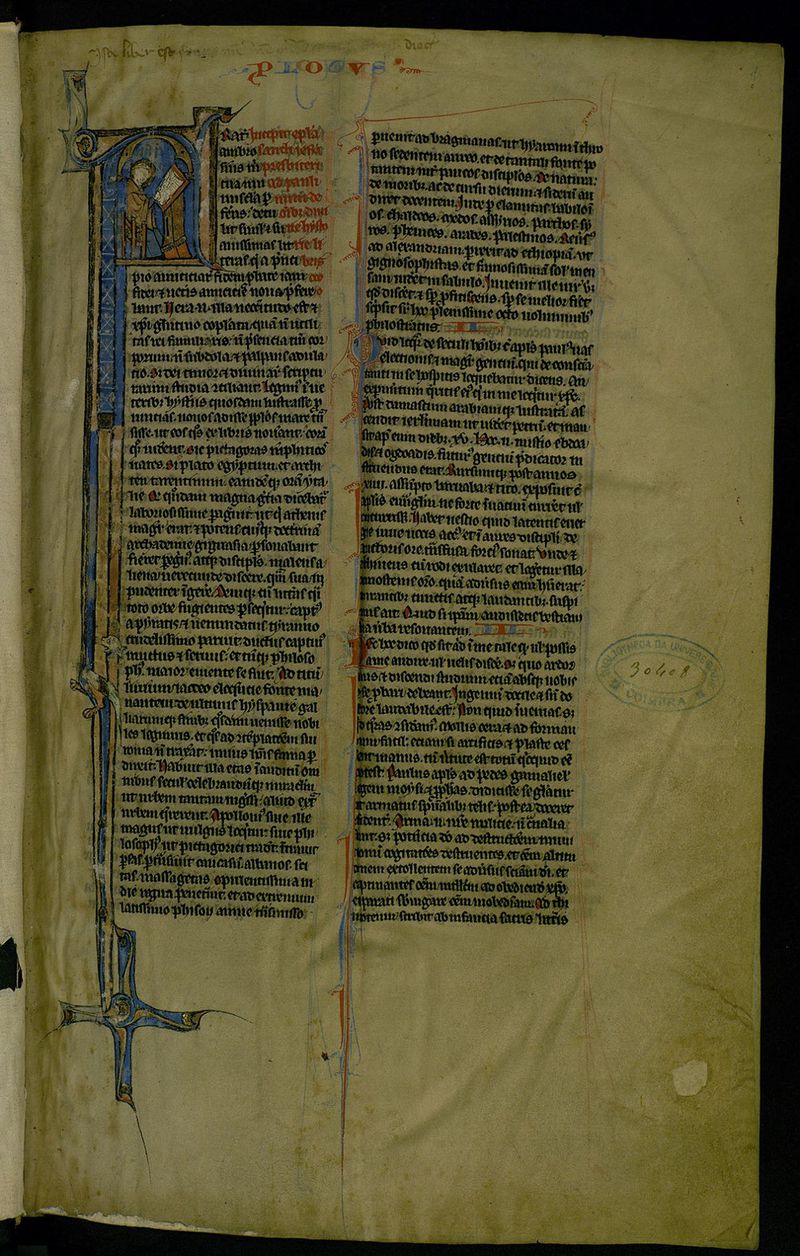 PLOGVS
Rat̄ Incipit epl̄a
ambro sancti ieroni
sius m̄ presbiteri
tua mu ad paulī
nuscula ꝑ
ferēs: detu
lit simul ⁊ sua
uissimas litt̄
teras. q̄ a p̄nci
pio amicitiaꝝ fidem ꝓbate iam
fidei ⁊ ueteris amicitie noua ꝓfere
bant. Uera .n. illa necc̄itudo est ⁊
xp̄i glutino copulata. quā n̄ utili
tas rei familiaris. n̄ p̄sentia tm̄ cor
porum. n̄ subdola. ⁊ palpans adula
tio. sꝫ dei timor ⁊ diuinaꝝ scriptu
rarum studia ↄciliant. Legim᷒ ī ue
teribꝫ hystoriis quosdam lustrasse ꝓ
uincias. nouos adisse pp̄los. maria tn̄
sisse. ut eos q̄s ex libris nouant. corā
qꝫ uiderent. sic pictagoras mēphiticos
uates. si plato egyptum. et archi
tam tarentinum. eamdēqꝫ orā yta
lie q̄ quondam magna grecia dicebat᷒
laboriosissime pagrauit. ut q̄ athenis
magr̄ erat ⁊ potens cuiusqꝫ doctrinas
achademie gignasia ꝑsonabant
fieret pegn᷒. atqꝫ discipls. malens a
liena uerecunde discere. qm̄ sua ī
pudenter īgerere. Deniqꝫ cū litteras q̄si
toto orbe fugientes ꝑseqt᷒ur. captus
a pyratis ⁊ uenundatus tyranno
crudelissimo paruit. ductus captiuus
uinctus ⁊ seruus. et tn̄ qꝫ philoso
phus maior emente se fuit. Ad titū
liuium lacteo eloq̄ntie fonte ma
nantem. de ultimis hyspanie gal
liarumqꝫ finibꝫ q̄sdam uenisse nobi
les legimus. et q̄s ad ↄtēplatōem sui
roma n̄ traxat. unius hōis fama ꝑ
duxit. Habuit illa etas īauditū om
nibus seculis celebrandūqꝫ miraculū
ut urbem tantam ingressi. aliud ext̄
urbem q̄rerent. Apollonius siue ille
magus ut uulgus loqt᷒ur. siue phi
losoph᷒ ut pictagorici tradūt. intrauit
ꝑsas. ꝑtransiuit caucasū. albanos. sci
tas. massagetas opulentissima in
die regna penetrauit. et ad extremum
latissimo phison amne tn̄smisso
ꝑuenit ad bragmanas. ut hyarcam ī thro
no sedentem aureo. et de tantali fonte po
tantem int̄ paucos discipulos. de natura.
de moribꝫ. ac de cursu dierum ⁊ siderū au
diret docentem. Inde ꝑ elamitas babiloni
os. chaldeos. medos. assirios. parthos. sy
ros. phenices. arabes. palestinos. reūsus
ad alexandriam. ꝑrexit ad ethiopiā. ut
gignosophistas et famosissimā solis men
sam uideret in sabulo. Inuenit ille uir u
biqꝫ q̄d disceret ⁊ sp̄ ꝓficiens. sp̄ se melior fieret
scpsit sup̄ hoc plenissime octo uoluminibꝫ
philostratus.
Quid loqr̄ de seculi hoībꝫ cū aplūs paulus uas
electionis ⁊ magr̄ gentiū. qui de conscīa
tanti in se hospitis loquebatur dicens. An
expimtum q̄ritis eius q̄ in me loqt᷒ur xp̄c.
post damascum arabiamqꝫ lustratā. as
cendit ierl̄imam ut uideret petrū. et man
sit ap᷒ eum diebꝫ .xv. Hoc .n. misterio ebdoa
dis ⁊ ogdoadis. futur᷒ gentiū p̄dicator in
struendus erat. Rursumqꝫ post annos
.xiiii. assūpto barnaba ⁊ tito. exposuit cū
aplis euuanglīm. ne forte ī uacuū curreret ul̄
cucurrisset. Habet nescio quid latentis ener
gie uiue uocis actus. et ī aures discipuli de
auctoris ore tn̄sfusa. fortius sonat. Unde ⁊
eschines cū rodi exularet. et legeret illa
demostenis orō. quā aduersus eum habuerat.
mirantibꝫ cunctis atqꝫ laudantibꝫ. suspi
rans ait. Quid si ip̄am audissetis bestiam
sua uerba resonantem.
Nec hoc dico q̄d sit aliqd ī me tale qd̄ ul̄ possis
a me audire. ul̄ uelis discere. sꝫ quo ardor
tuus ⁊ discendi studium etiā absqꝫ nobis
ꝑ se ꝓbari debeat. Ingenium docile ⁊ sn̄ do
ctore laudabile est. Non quid īuenias. sꝫ
quid q̄ras ↄsideram᷒. Mollis cera ⁊ ad formandū
facilis. etiam si artificis ⁊ plaste ces
sent manus. tn̄ uirtute est totū q̄cquid eē
potest. Paulus aplūs ad pedes gamaliel᷒
legem moysi ⁊ ꝓphetas. didicisse se gl̄atur
ut armatus spūalibꝫ telis. postea doceret
ↄfidenter. Arma .n. nr̄e malicie. n̄ carnalia
sunt. sꝫ potentia dō ad destructōem muni
tionū cogitatōes destruentes. et oēm altitu
dinem extollentem se aduersus scīam dī. et
captiuantes oēm intellectū ad obediendū xp̄o.
⁊ parati subiugare oēm inobedientiam. Ad thi
motheum scribit ab infancia sacris litteris
30408